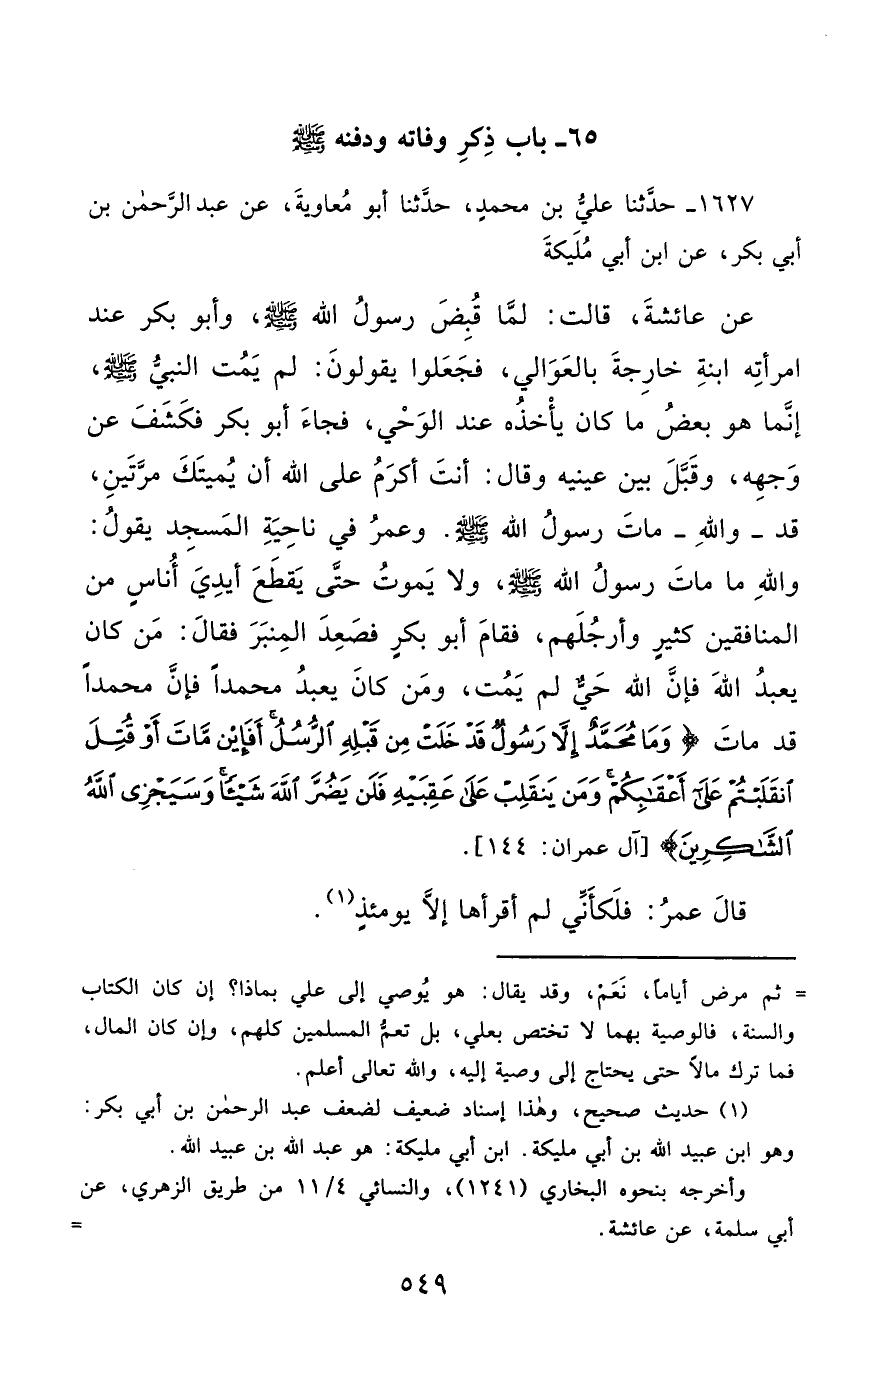 ٦٥ـ باب ذِكرِ وفاته ودفنه ﷺ
١٦٢٧ـ حدَّثنا عليُّ بن محمدٍ، حدَّثنا أبو مُعاويةَ، عن عبد الرَّحمٰن بن
أبي بكر، عن ابن أبي مُلَيكةَ
عن عائشةَ، قالت: لمَّا قُبِضَ رسولُ الله ﷺ، وأبو بكر عند
امرأتِه ابنةِ خارِجةَ بالعَوَالي، فجَعَلوا يقولونَ: لم يَمُت النبيُّ ﷺ،
إنَّما هو بعضُ ما كان يأْخذُه عند الوَحْي، فجاءَ أبو بكر فكَشَفَ عن
وَجهِه، وقَبَّلَ بين عينيه وقال: أنتَ أكرَمُ على الله أن يُميتَكَ مرَّتَينِ،
قد ـ واللهِ ـ ماتَ رسولُ الله ﷺ. وعمرُ في ناحِيَةِ المَسجِد يقولُ:
واللهِ ما ماتَ رسولُ الله ﷺ، ولا يَموتُ حتَّى يَقطَعَ أيدِيَ أُناسٍ من
المنافقين كثيرٍ وأرجُلَهم، فقامَ أبو بكرٍ فصَعِدَ المِنبَرَ فقالَ: مَن كان
يعبدُ اللهَ فإنَّ الله حَيٌّ لم يَمُت، ومَن كانَ يعبدُ محمداً فإنَّ محمداً
قد ماتَ ﴿ وَمَا مُحَمَّدٌ إِلَّا رَسُولٌ قَدْ خَلَتْ مِن قَبْلِهِ ٱلرُّسُلُ ۚ أَفَإِيْن مَّاتَ أَوْ قُتِلَ
ٱنقَلَبْتُمْ عَلَىٰٓ أَعْقَـٰبِكُمْ ۚ وَمَن يَنقَلِبْ عَلَىٰ عَقِبَيْهِ فَلَن يَضُرَّ ٱللَّهَ شَيْـًٔا ۗ وَسَيَجْزِى ٱللَّهُ
ٱلشَّـٰكِرِينَ﴾ [آل عمران: ١٤٤].
قالَ عمرُ: فلَكأَنِّي لم أقرأها إلاَّ يومئذٍ(١).
= ثم مرض أياماً، نَعَمْ، وقد يقال: هو يُوصي إلى علي بماذا؟ إن كان الكتاب
والسنة، فالوصية بهما لا تختص بعلي، بل تعمُّ المسلمين كلهم، وإن كان المال،
فما ترك مالاً حتى يحتاج إلى وصية إليه، والله تعالى أعلم.
(١) حديث صحيح، وهٰذا إسناد ضعيف لضعف عبد الرحمٰن بن أبي بكر:
وهو ابن عبيد الله بن أبي مليكة. ابن أبي مليكة: هو عبد الله بن عبيد الله.
وأخرجه بنحوه البخاري (١٢٤١)، والنسائي ٤/ ١١ من طريق الزهري، عن
أبي سلمة، عن عائشة. =
٥٤٩